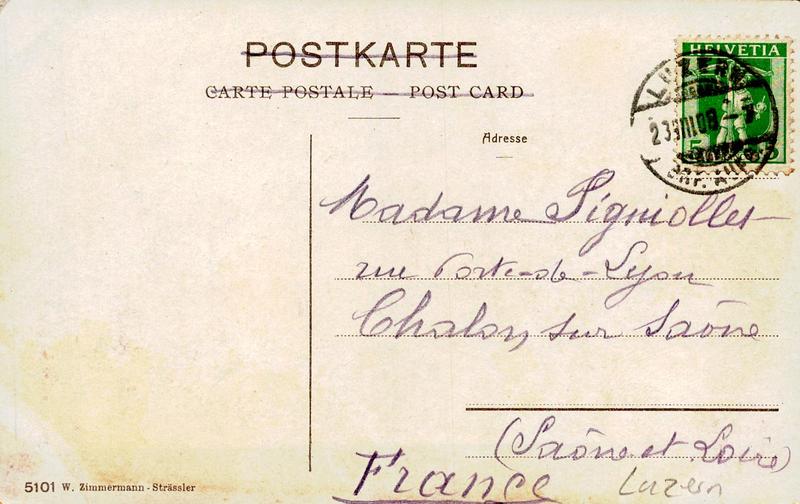 POSTKARTE
CARTE POSTALE — POST CARD
HELVETIA
5
LUZERN
Adresse
Madame
rue Porte-de-Lyon
Chalon sur Saône
(Saône et Loire)
France
Luzern
5101 W. Zimmermann-Strässler